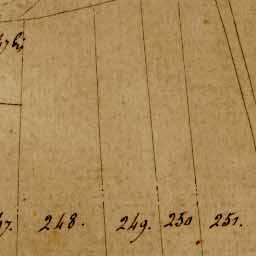 248. 249. 250 251.